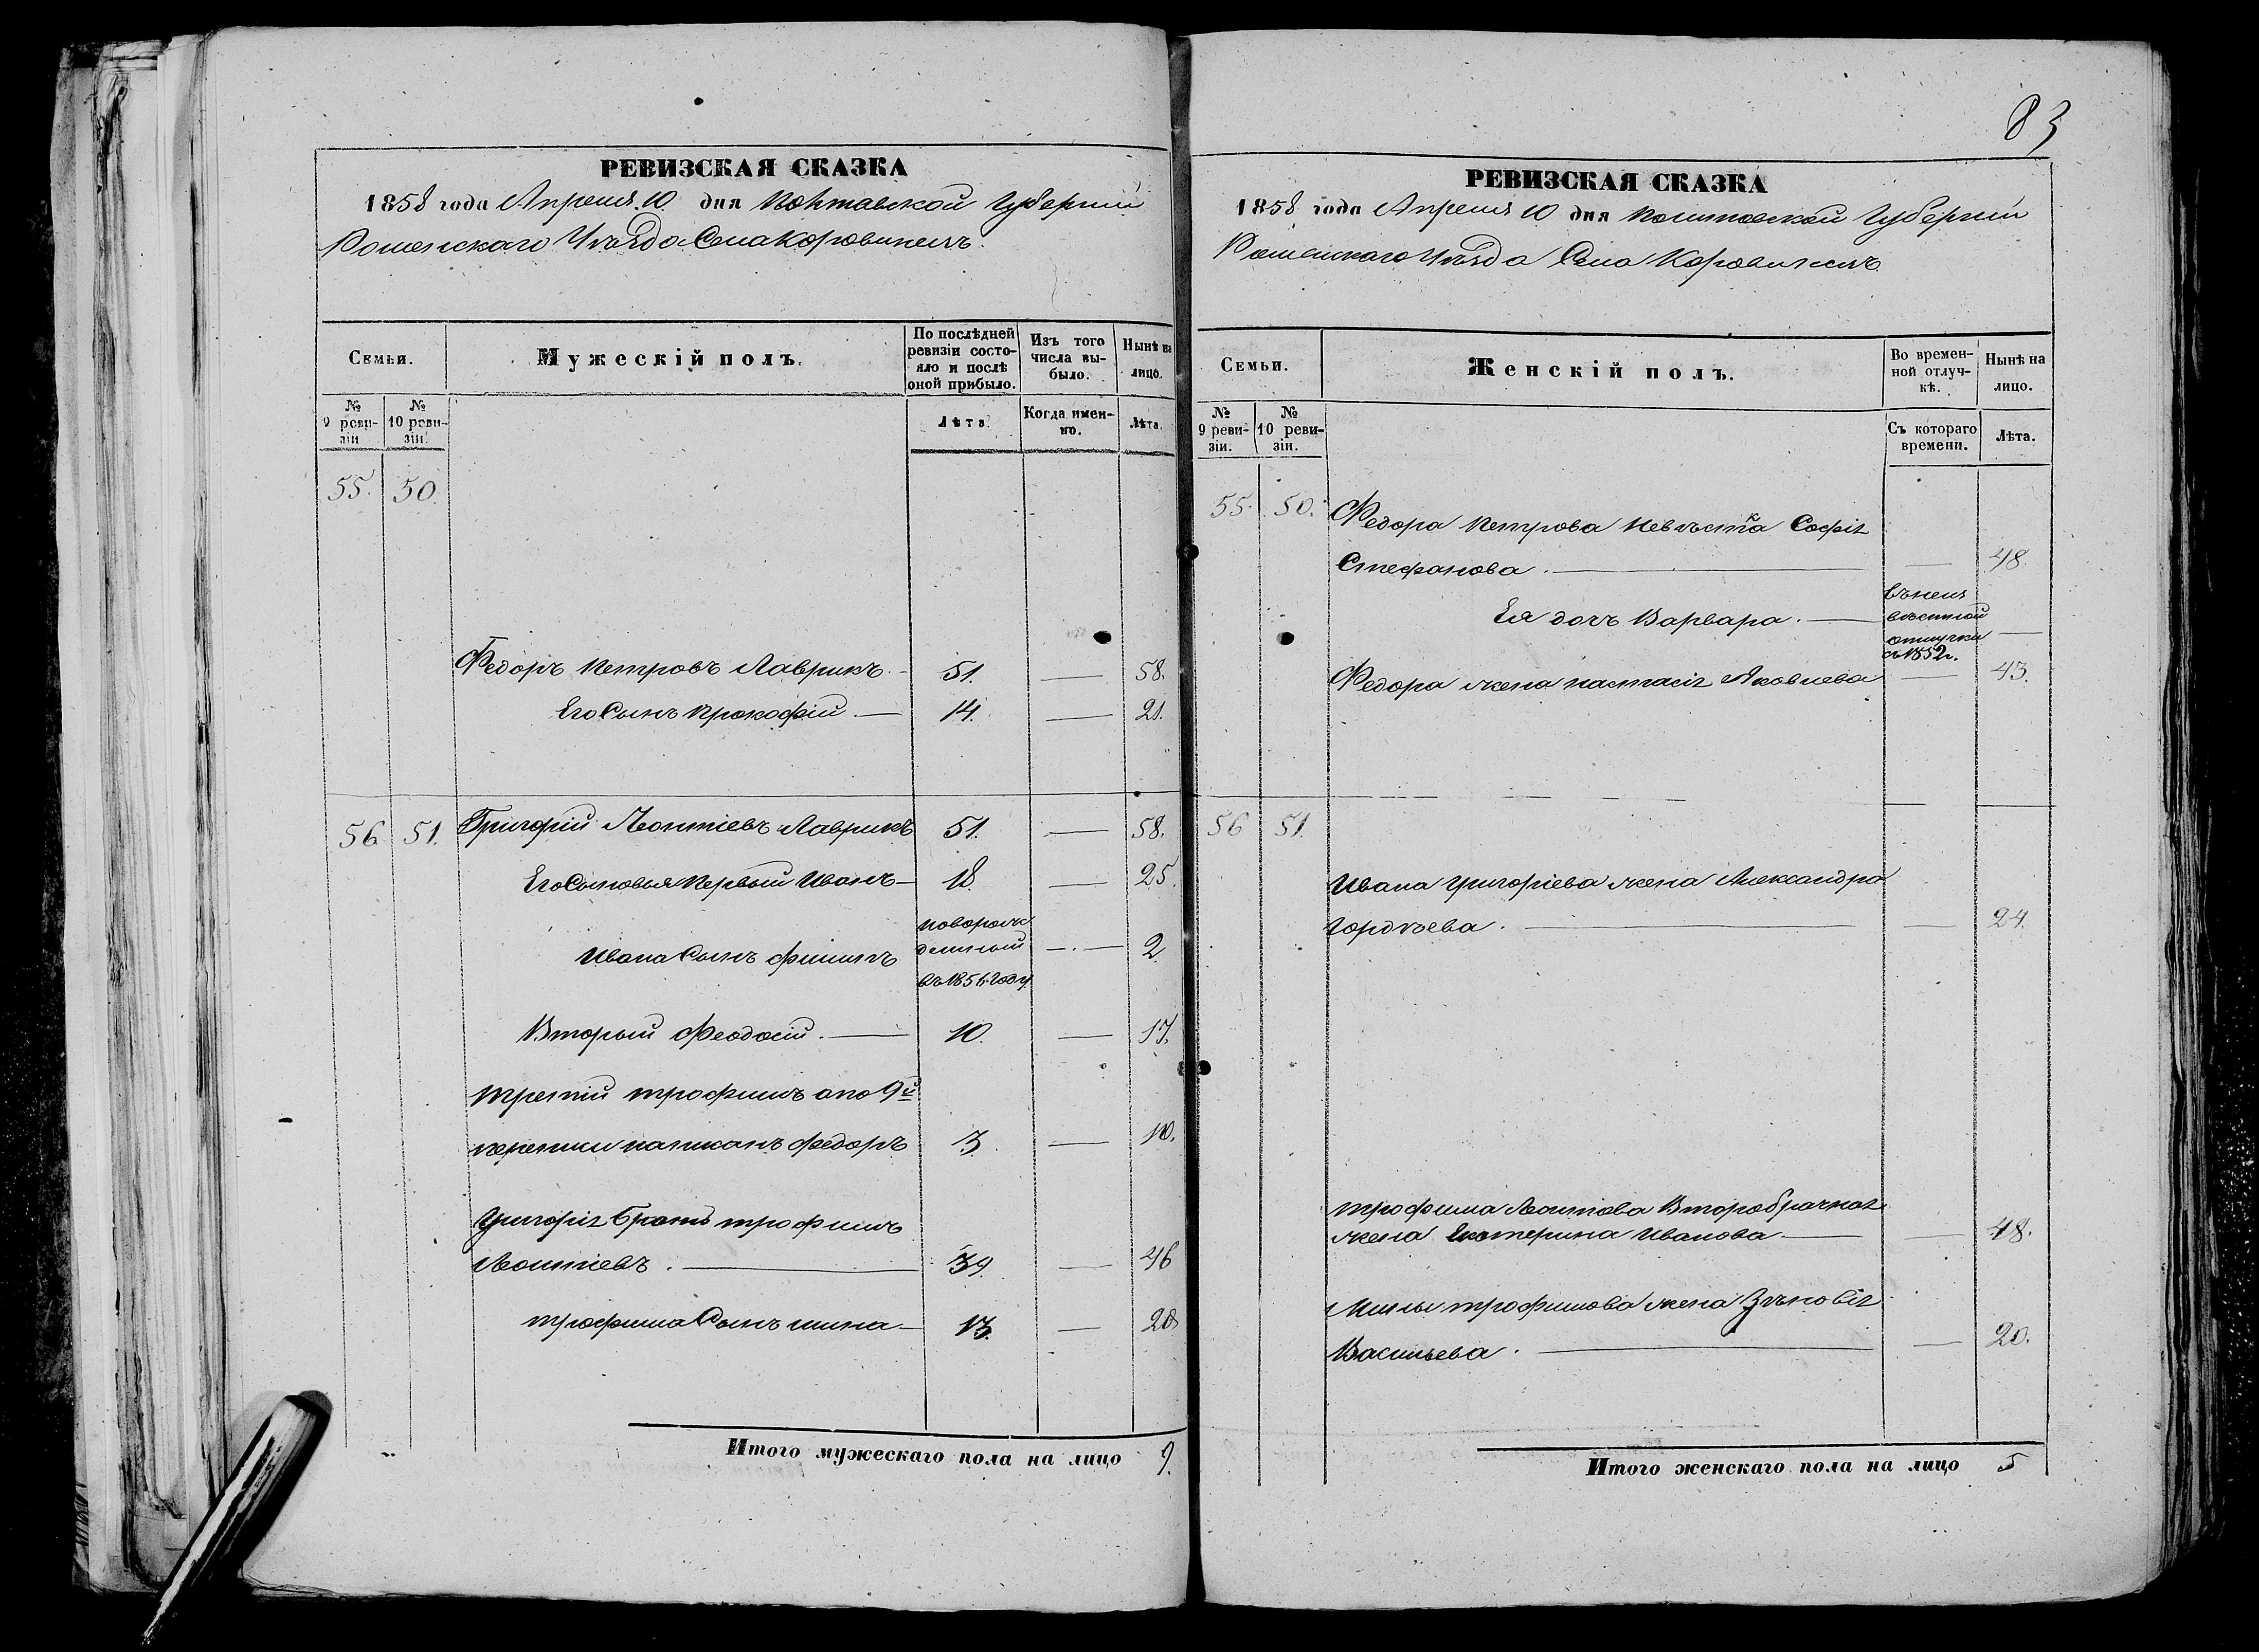 83
РЕВИЗСКАЯ СКАЗКА
1858 года Апреля 10 дня Полтавской Губернии
Роменскаго Уѣзда Села Коровинецъ.
Семьи.
Мужескій полъ.
По послѣдней ревизіи состояло и послѣ оной прибыло.
Изъ того числа выбыло.
Нынѣ на лицо.
№ 9 ревизіи
№ 10 ревизіи.
Лѣта.
Когда именно.
Лѣта.
55. 50.
Федоръ Петровъ Лаврикъ. 51. — 58.
Его Сынъ Прокофій. — 14. — 21.
56 51. Григорій Леонтіевъ Лаврикъ 51. — 58.
Его Сыновья Первый Иванъ — 18. — 25.
Ивана Сынъ Филипъ новорожденный въ 1856 году — 2
Вторый Феодосій. — 10. — 17.
Третій Трофимъ а по 9й
переписи написанъ Федоръ 3. — 10.
Григорія Братъ Трофимъ
Леонтіевъ. — 39. — 46
Трофима Сынъ Мина — 13. — 20
Итого мужескаго пола на лицо 9.
РЕВИЗСКАЯ СКАЗКА
1858 года Апреля 10 дня Полтавской Губерніи
Роменскаго Уѣзда Села Коровинецъ
Семьи.
Женскій полъ.
Во временной отлучкѣ.
Нынѣ на лицо.
№ 9 ревизіи.
№ 10 ревизіи.
Съ котораго времени.
Лѣта.
55. 50. Федора Петрова Невѣстка Софія
Стефанова. — — 48.
Ея дочъ Варвара. — въ неизвѣстной отлучки съ 1852 г. —
Федора жена Настасія Яковлева — 43.
56 51.
Ивана Григоріева жена Александра
Гордѣева. — — 24.
Трофима Леонтіова Второбрачная
жена Екатерина Иванова — — 48.
Мины Трофимова жена Зѣновія
Васильева. — — 20.
Итого женскаго пола на лицо 5